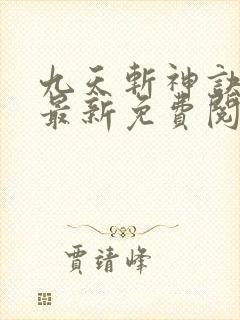 九天斬神訣
最新免費閱
賈靖峰